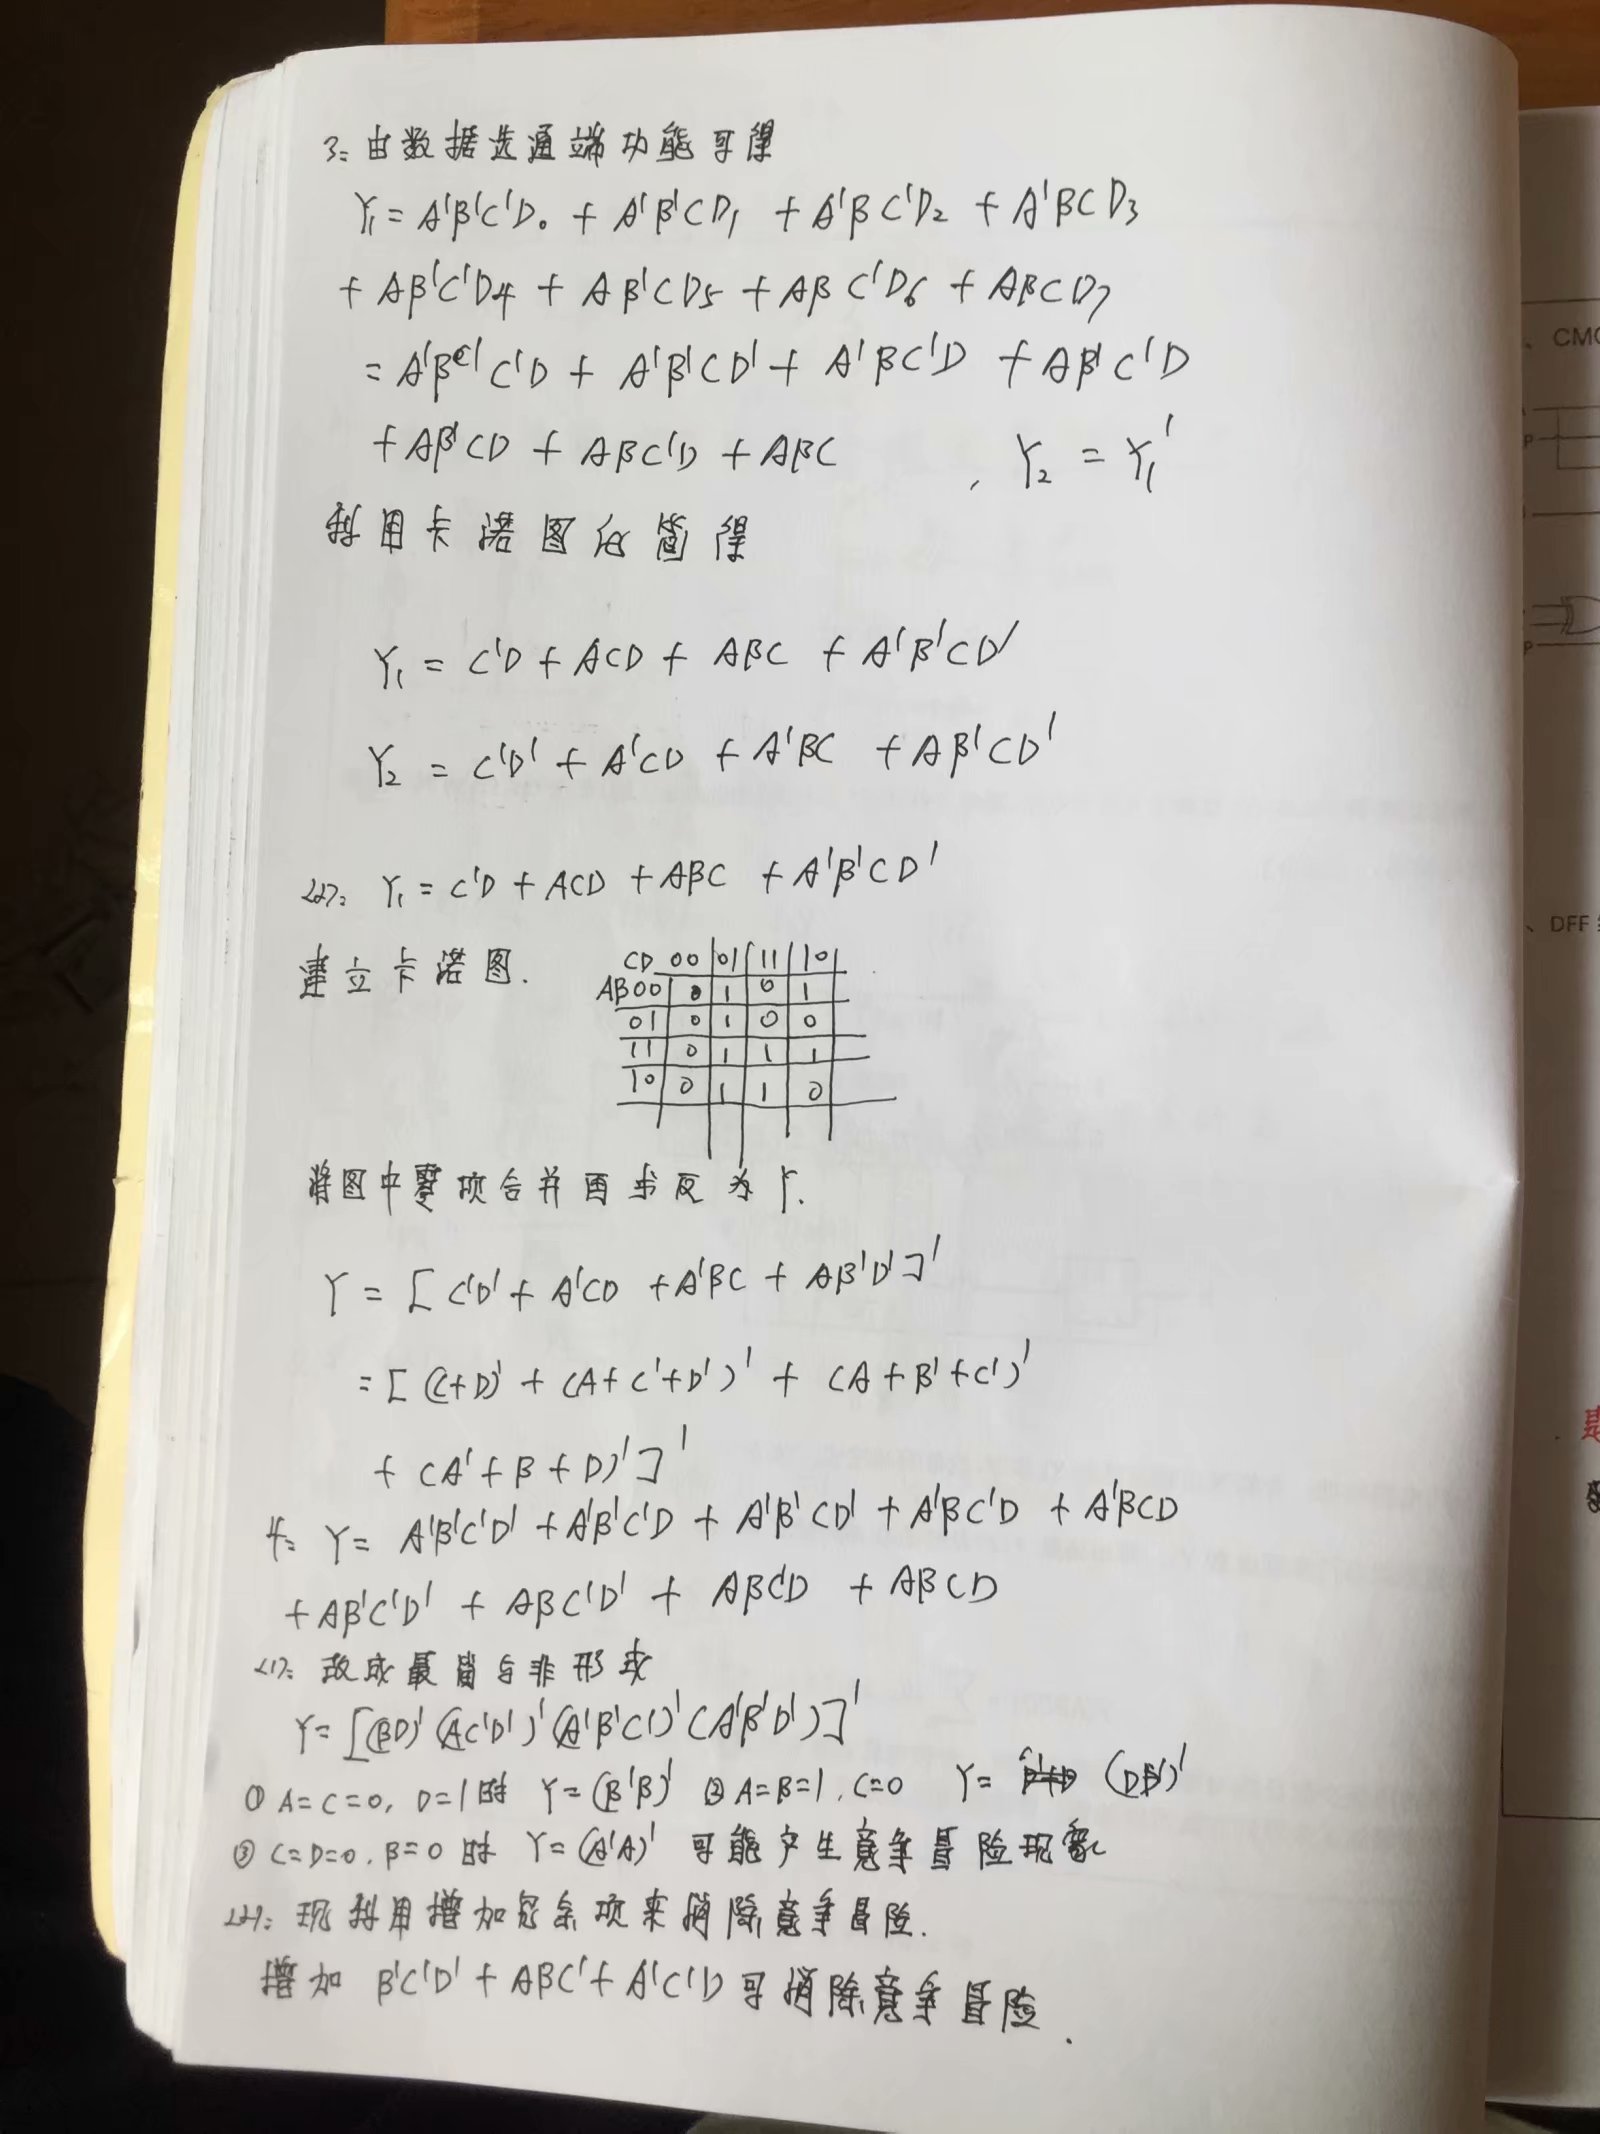 3: 由数据选通端功能可得
Y₁ = A'B'C'D₀ + A'B'CD₁ + A'BC'D₂ + A'BCD₃
+ AB'C'D₄ + AB'CD₅ + ABC'D₆ + ABCD₇
= A'B'C'D + A'B'CD' + A'BC'D + AB'C'D
+ AB'CD + ABC'D + ABC , Y₂ = Y₁'
利用卡诺图化简得
Y₁ = C'D + ACD + ABC + A'B'CD'
Y₂ = C'D' + A'CD + A'BC + AB'CD'
<2>: Y₁ = C'D + ACD + ABC + A'B'CD'
建立卡诺图.
CD 00 01 11 10
AB00 0 1 0 1
01 0 1 0 0
11 0 1 1 1
10 0 1 1 0
将图中零项合并再求反为Y.
Y = [C'D' + A'CD + A'BC + AB'D']'
= [(C+D)' + (A+C'+D')' + (A+B'+C')'
+ (A'+B+D)']'
4: Y = A'B'C'D' + A'B'C'D + A'B'CD' + A'BC'D + A'BCD
+ AB'C'D' + ABC'D' + ABC'D + ABCD
<1>: 改成最简与非形式
Y = [(BD)' (AC'D')' (A'B'C')' (A'B'D')]'
① A=C=0, D=1时 Y=(B'B)' ② A=B=1, C=0 Y= (DD')'
③ C=D=0, B=0时 Y=(A'A)' 可能产生竞争冒险现象
<2>: 现利用增加冗余项来消除竞争冒险.
增加 B'C'D' + ABC' + A'C'D 可消除竞争冒险.
CMO
DFF